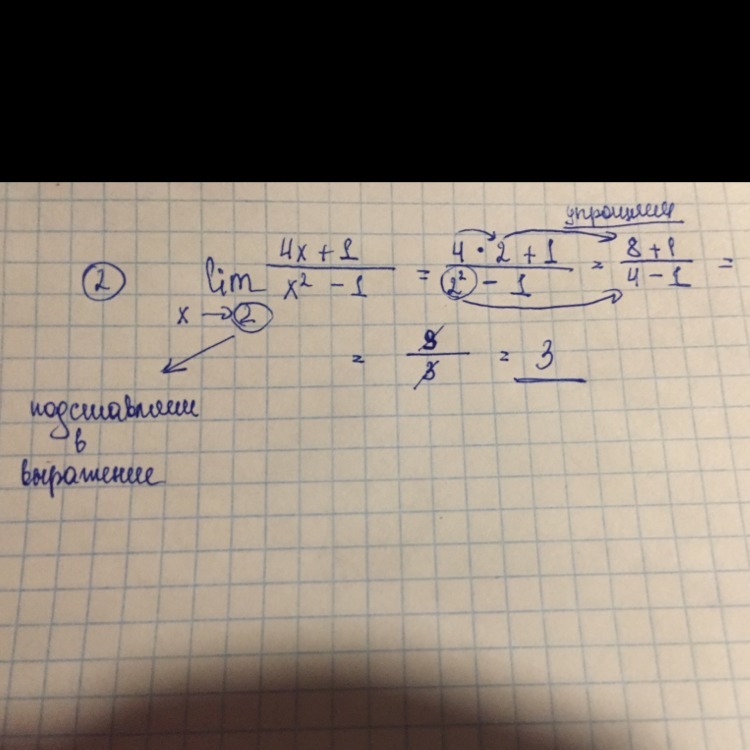 упрощаем
② lim x→2 (4x + 1)/(x² - 1) = (4 · 2 + 1)/(2² - 1) = (8 + 1)/(4 - 1) =
= 9/3 = 3
подставляем
в
выражение